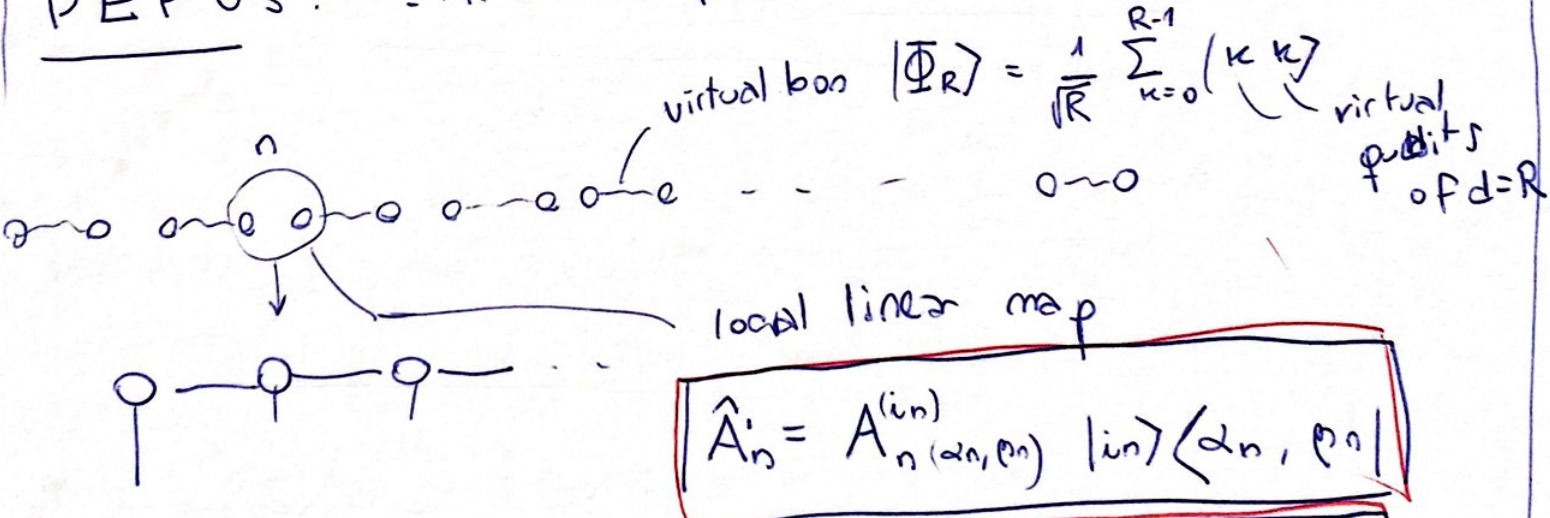 virtual bon |Φ_R⟩ = 1/√R Σ_{k=0}^{R-1} |k k⟩
virtual
qudits
of d=R
n
local linear map
Â_n = A_{n(αn, βn)}^{(in)} |in⟩⟨αn, βn|